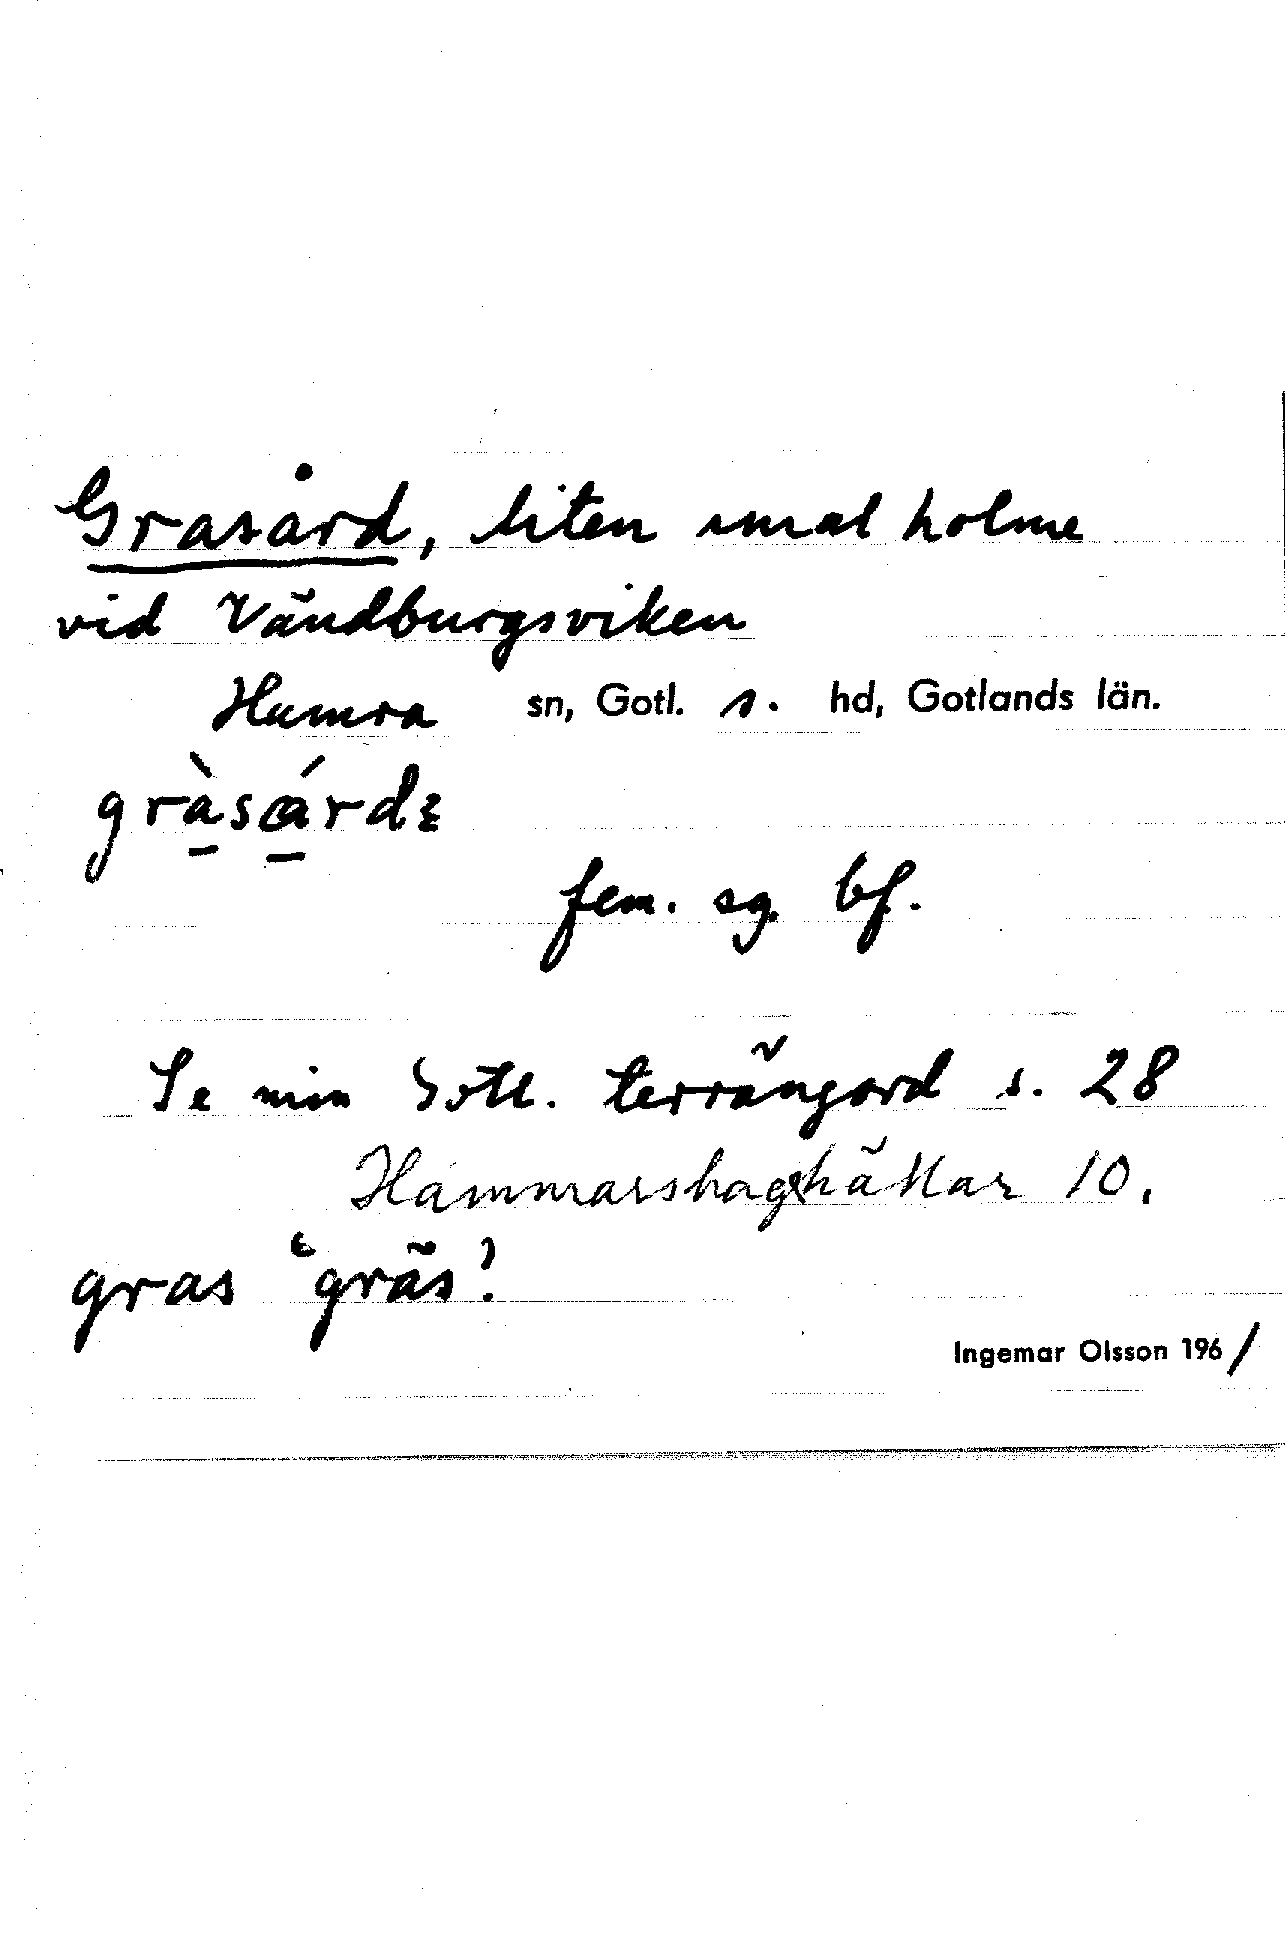 Grasård, liten smal holme
vid Vändburgsviken
Hamra sn, Gotl. s. hd, Gotlands län.
gràsárdɛ
fem. sg. bf.
Se min Gotl. terrängord s. 28
Hammarshaghällar 10.
gras ‘gräs’.
Ingemar Olsson 196/